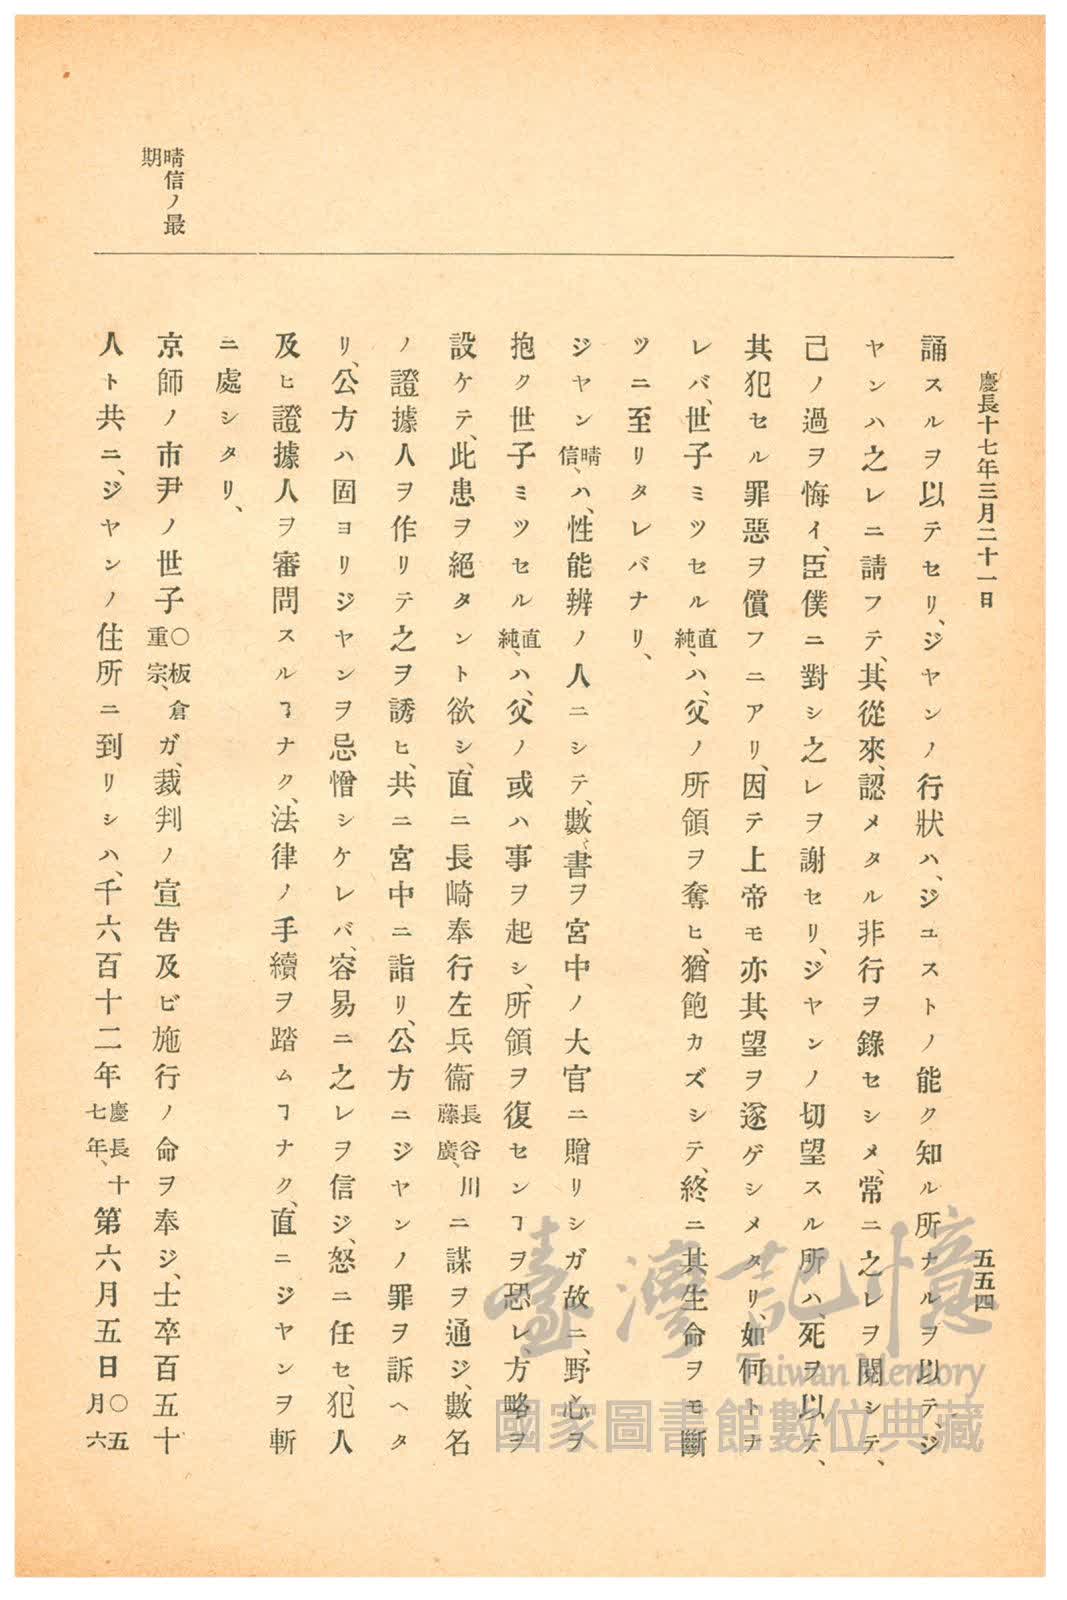 慶長十七年三月二十一日
五五四
誦スルヲ以テセリ、ジヤンノ行狀ハ、ジユストノ能ク知ル所ナルヲ以テ、ジ
ヤンハ之レニ請フテ、其從來、認メタル非行ヲ錄セシメ、常ニ之レヲ閱シテ、
己ノ過ヲ悔イ、臣僕ニ對シ之レヲ謝セリ、ジヤンノ切望スル所ハ、死ヲ以テ、
其犯セル罪惡ヲ償フニアリ、因テ上帝モ亦其望ヲ遂ゲシメタリ、如何トナ
レバ、世子ミツセル直純、ハ、父ノ所領ヲ奪ヒ、猶飽カズシテ、終ニ其生命ヲモ斷
ツニ至リタレバナリ、
ジヤン晴信、ハ、性能辨ノ人ニシテ、數〻書ヲ宮中ノ大官ニ贈リシガ故ニ、野心ヲ
抱ク世子ミツセル直純、ハ、父ノ或ハ事ヲ起シ、所領ヲ復センヿヲ恐レ、方略ヲ
設ケテ、此患ヲ絕タント欲シ、直ニ長崎奉行左兵衞長谷川藤廣、ニ謀ヲ通ジ、數名
ノ證據人ヲ作リテ之ヲ誘ヒ、共ニ宮中ニ詣リ、公方ニジヤンノ罪ヲ訴ヘタ
リ、公方ハ固ヨリジヤンヲ忌憎シケレバ、容易ニ之レヲ信ジ、怒ニ任セ、犯人
及ヒ證據人ヲ審問スルヿナク、法律ノ手續ヲ踏ムヿナク、直ニジヤンヲ斬
ニ處シタリ、
晴信ノ最
期
京師ノ市尹ノ世子〇板倉重宗、ガ、裁判ノ宣告及ビ施行ノ命ヲ奉ジ、士卒百五十
人ト共ニ、ジヤンノ住所ニ到リシハ、千六百十二年慶長十七年、第六月五日〇五月六
臺灣記憶
Taiwan Memory
國家圖書館數位典藏